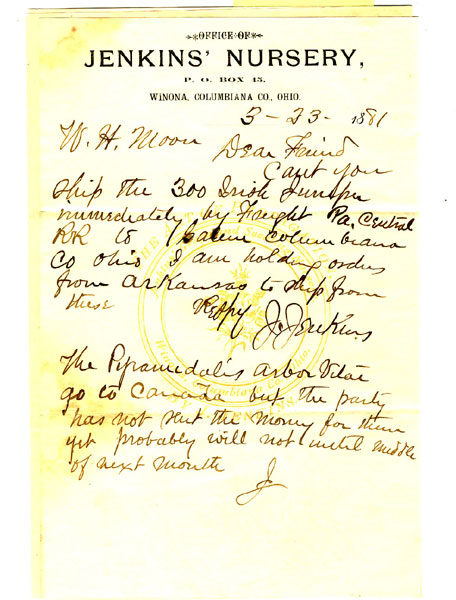 OFFICE OF
JENKINS' NURSERY,
P. O. BOX 45,
WINONA, COLUMBIANA CO., OHIO.
3-23-1881
W. H. Moon
Dear Friend
Cant you
ship the 300 Irish Juniper
immediately by Freight Pa. Central
RR to Salem Columbiana
Co Ohio I am holding orders
from Arkansas to ship from
these
Respy
J. Jenkins
The Pyramedalis Arbor Vitae
go to Canada but the party
has not sent the money for them
yet probably will not until middle
of next month
J